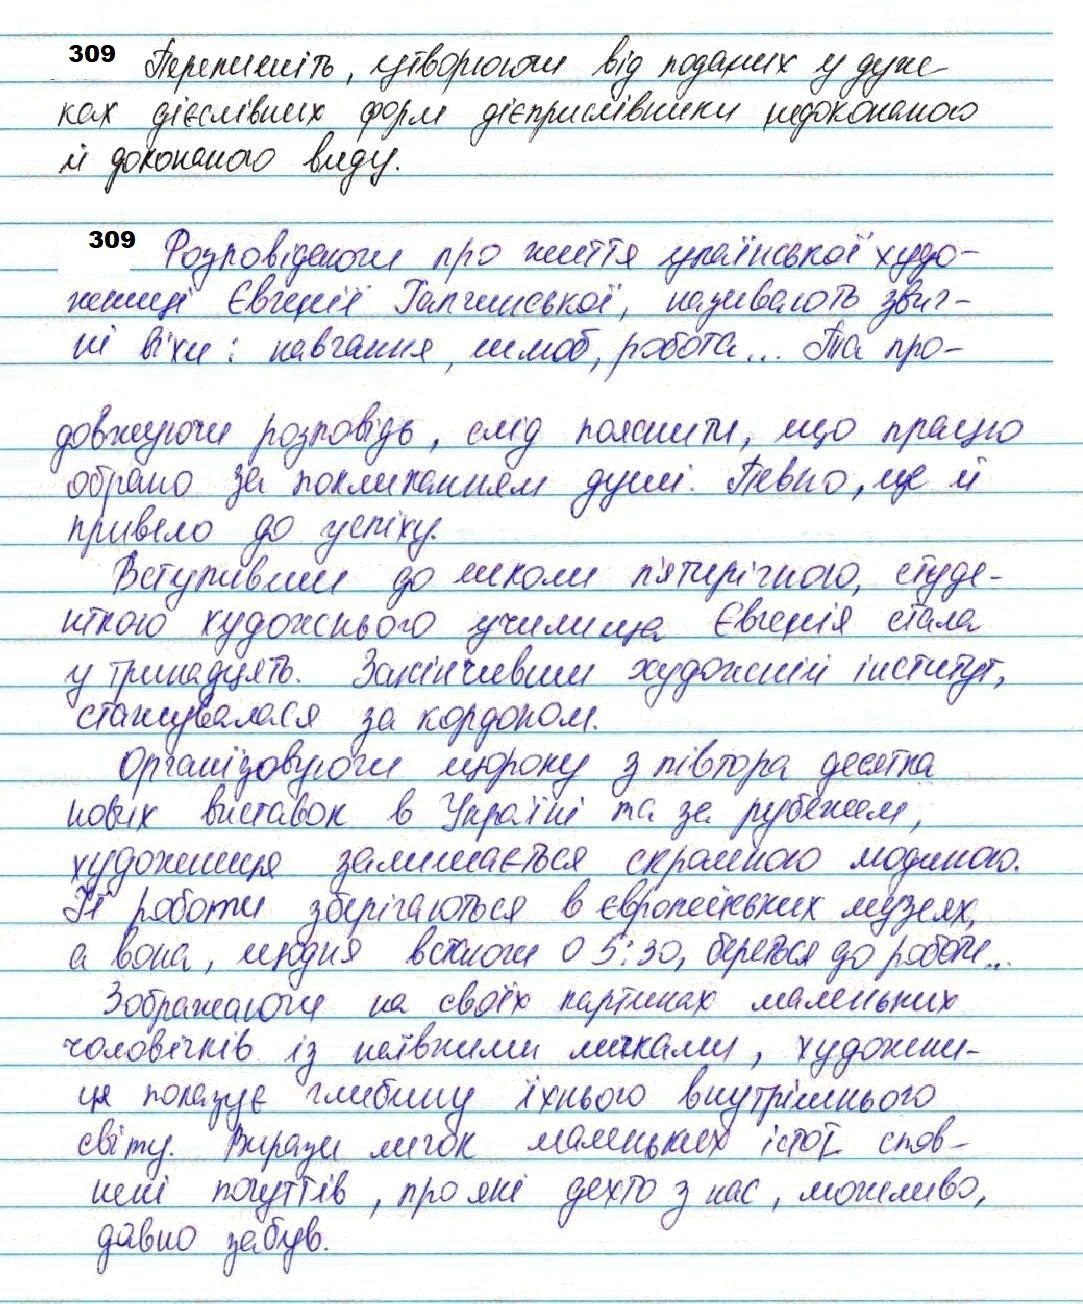 309 Перепишіть, утворюючи від поданих у дуж-
ках дієслівних форм дієприслівники недоконаного
й доконаного виду.
309 Розповідаючи про життя української худо-
жниці Євгенії Гапчинської, називають звич-
ні віхи: навчання, шлюб, робота... Та про-
довжуючи розповідь, слід пояснити, що працю
обрано за покликанням душі. Певно, це й
привело до успіху.
Вступивши до школи п'ятирічною, студе-
нткою художнього училища Євгенія стала
у тринадцять. Закінчивши художній інститут,
стажувалася за кордоном.
Організовуючи щороку з півтора десятка
нових виставок в Україні та за рубежем,
художниця залишається скромною людиною.
Її роботи зберігаються в європейських музеях,
а вона, щодня встаючи о 5:30, береться до роботи...
Зображаючи на своїх картинах маленьких
чоловічків із наївними личками, художни-
ця показує глибину їхнього внутрішнього
світу. Вирази личок маленьких істот спов-
нені почуттів, про які дехто з нас, можливо,
давно забув.